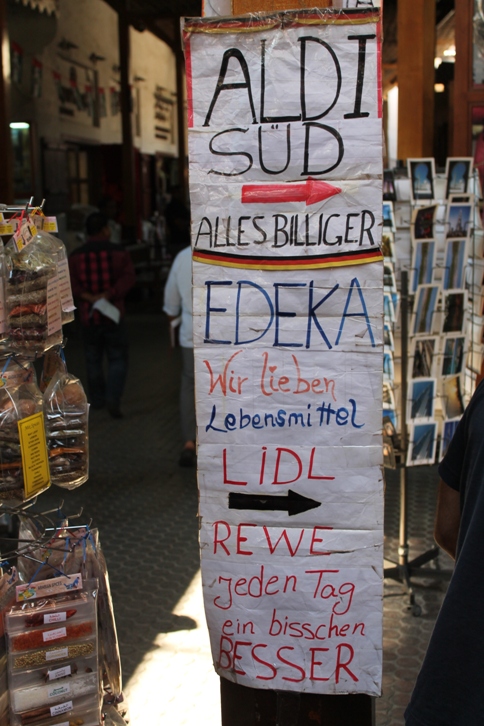 ALDI
SÜD
ALLES BILLIGER
EDEKA
Wir lieben
Lebensmittel
LiDL
REWE
jeden Tag
ein bisschen
BESSER